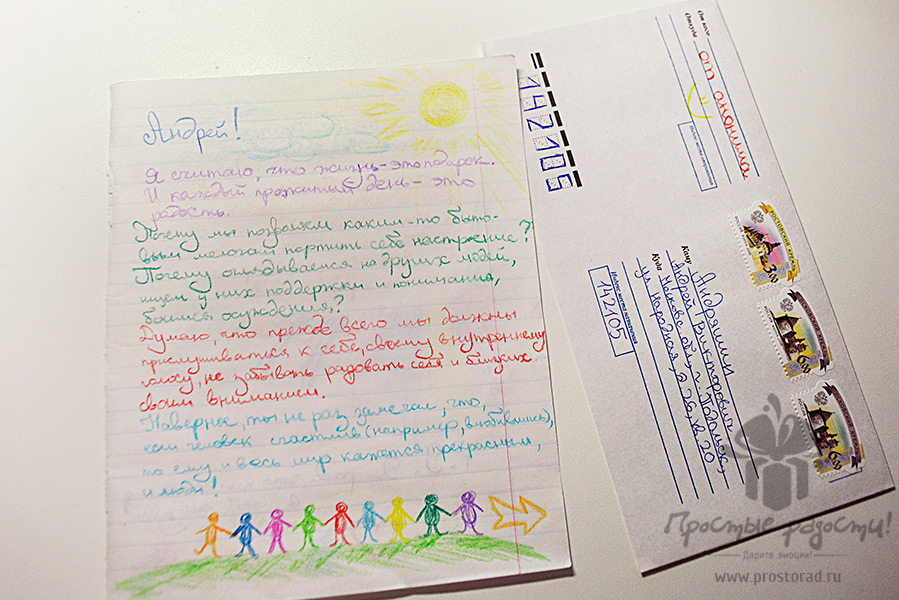 Андрей!
Я считаю, что жизнь - это подарок.
И каждый прожитый день - это
радость.
Почему мы позволяем каким-то быто-
вым мелочам портить себе настроение?
Почему оглядываемся на других людей,
ищем у них поддержки и понимания,
боимся осуждения?
Думаю, что прежде всего мы должны
прислушиваться к себе, своему внутреннему
голосу, не забывать радовать себя и близких
своим вниманием.
Наверное, ты не раз замечал, что,
если человек счастлив (например, влюбившись),
то ему и весь мир кажется прекрасным,
и люди!
142105
От кого
от анонима
Откуда
Кому
Андрей Викторович
Куда
Московс. обл., г. Подольск,
ул. Народная, д. 26, кв. 20
142105
РОСТОВСКИЙ КРЕМЛЬ
3.00
6.00
6.00
Простые радости!
Дарите эмоции!
www.prostorad.ru